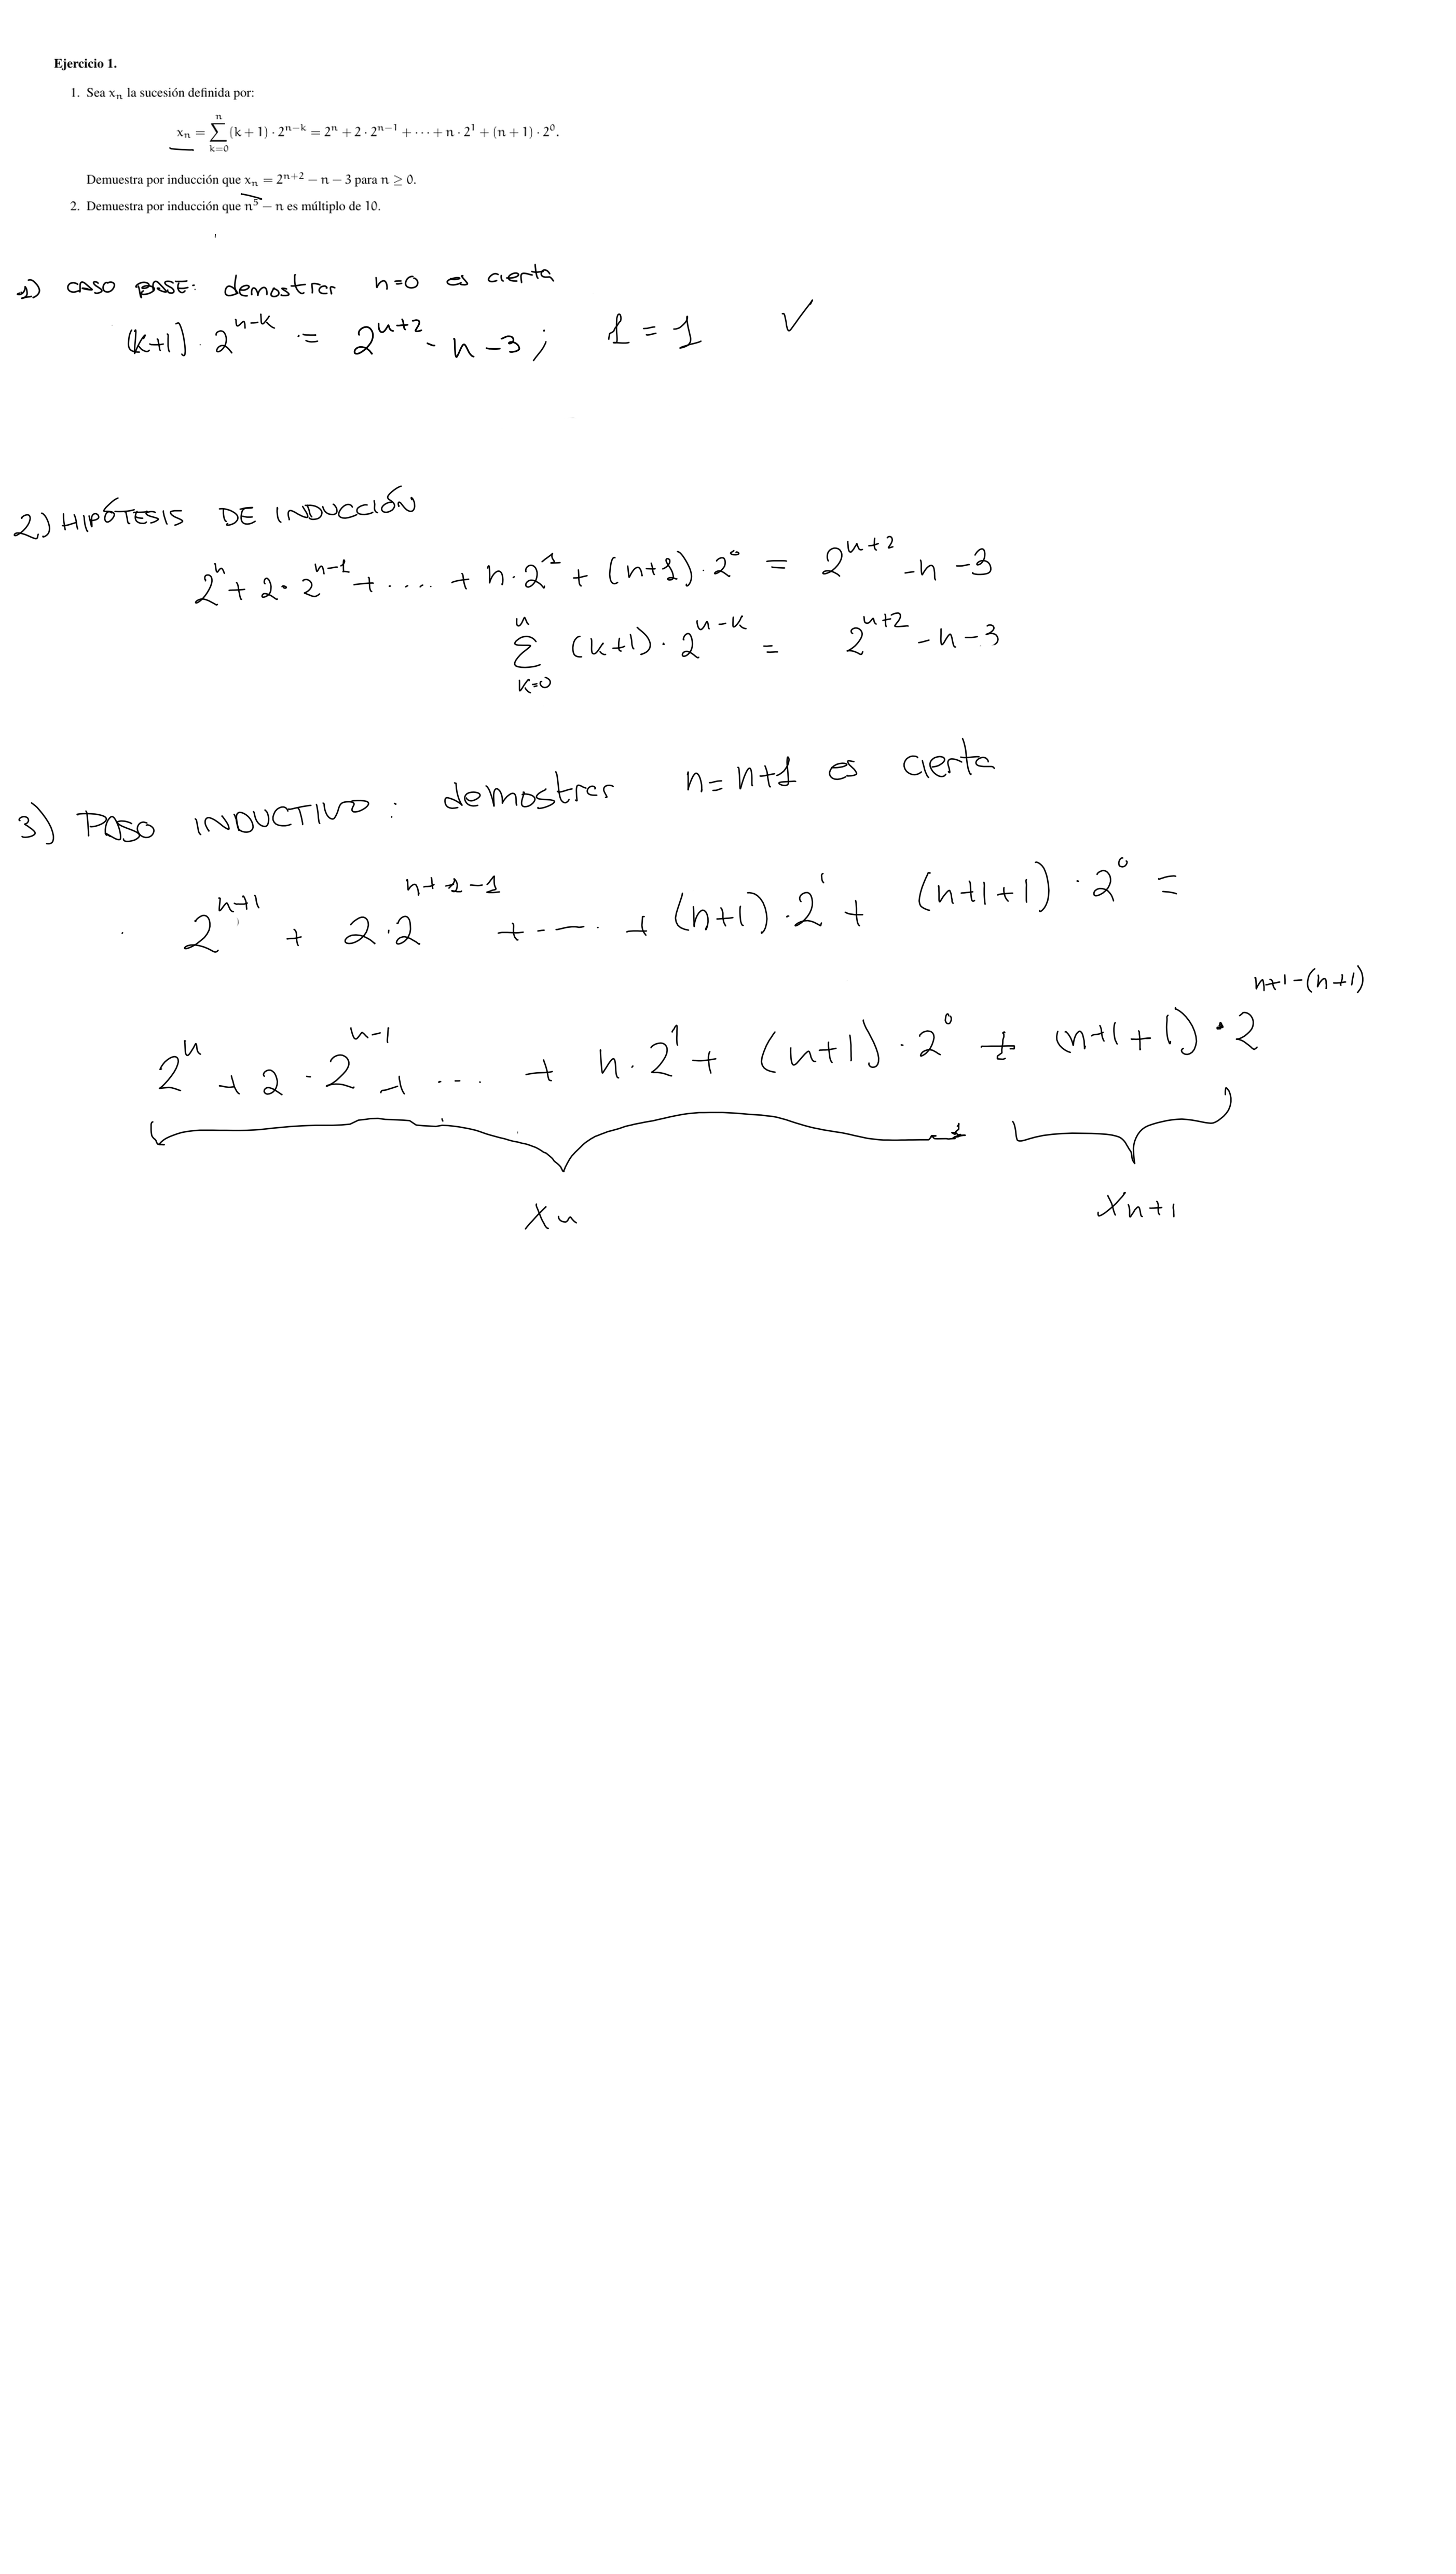 Ejercicio 1.
1. Sea xₙ la sucesión definida por:
xₙ = ∑ₖ₌₀ⁿ (k + 1) · 2ⁿ⁻ᵏ = 2ⁿ + 2 · 2ⁿ⁻¹ + ··· + n · 2¹ + (n + 1) · 2⁰.
Demuestra por inducción que xₙ = 2ⁿ⁺² − n − 3 para n ≥ 0.
2. Demuestra por inducción que n⁵ − n es múltiplo de 10.
1) CASO BASE: demostrar n=0 es cierta
(k+1) · 2ⁿ⁻ᵏ = 2ⁿ⁺² - n - 3 ; 1 = 1 ✓
2) HIPÓTESIS DE INDUCCIÓN
2ⁿ + 2 · 2ⁿ⁻¹ + .... + n · 2¹ + (n+1) · 2⁰ = 2ⁿ⁺² - n - 3
∑ₖ₌₀ⁿ (k+1) · 2ⁿ⁻ᵏ = 2ⁿ⁺² - n - 3
3) PASO INDUCTIVO : demostrar n = n+1 es cierta
2ⁿ⁺¹ + 2 · 2ⁿ⁺¹⁻¹ + .... + (n+1) · 2¹ + (n+1+1) · 2⁰ =
2ⁿ + 2 · 2ⁿ⁻¹ + ... + n · 2¹ + (n+1) · 2⁰ + (n+1+1) · 2ⁿ⁺¹⁻⁽ⁿ⁺¹⁾
xₙ xₙ₊₁